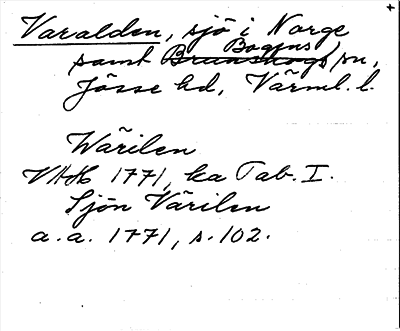 Varalden, sjö i Norge
Bogens
samt Brunskogs sn,
Jösse hd, Värml. l.
Wärilen
VAH 1771, ka Tab. I.
Sjön Värilen
a.a. 1771, s. 102.